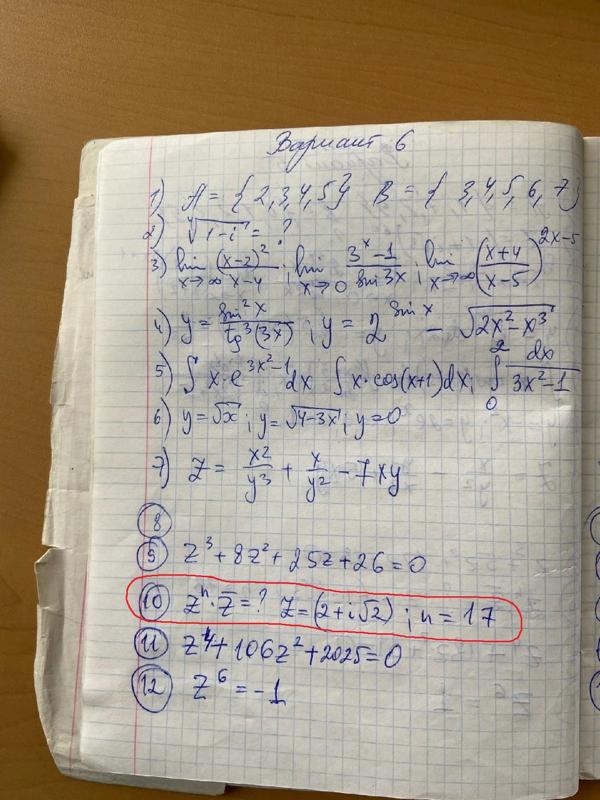 Вариант 6
1) A = {2,3,4,5} B = {3,4,5,6,7}
2) √(1-i) = ?
3) lim x→∞ (x-2)²/(x-4) ; lim x→0 (3ˣ-1)/(sin3x) ; lim x→∞ ((x+4)/(x-5))^(2x-5)
4) y = sin²x/tg³(3x) ; y = 2^(sin x) - √(2x²-x³)
5) ∫ x·e^(3x²-1) dx ∫ x·cos(x+1)dx; ∫₀² dx/(3x²-1)
6) y=√x ; y=√(4-3x) ; y=0
7) Z = x²/y³ + x/y² - 7xy
8
9 Z³+8Z²+25Z+26=0
10 Zⁿ·Z̅=? Z=(2+i√2) ; n=17
11 Z⁴+106Z²+2025=0
12 Z⁶=-1